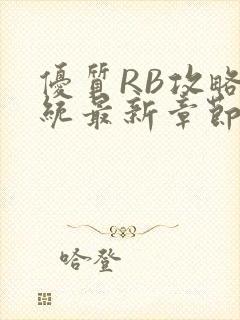 優質RB攻略
統最新章節
哈登